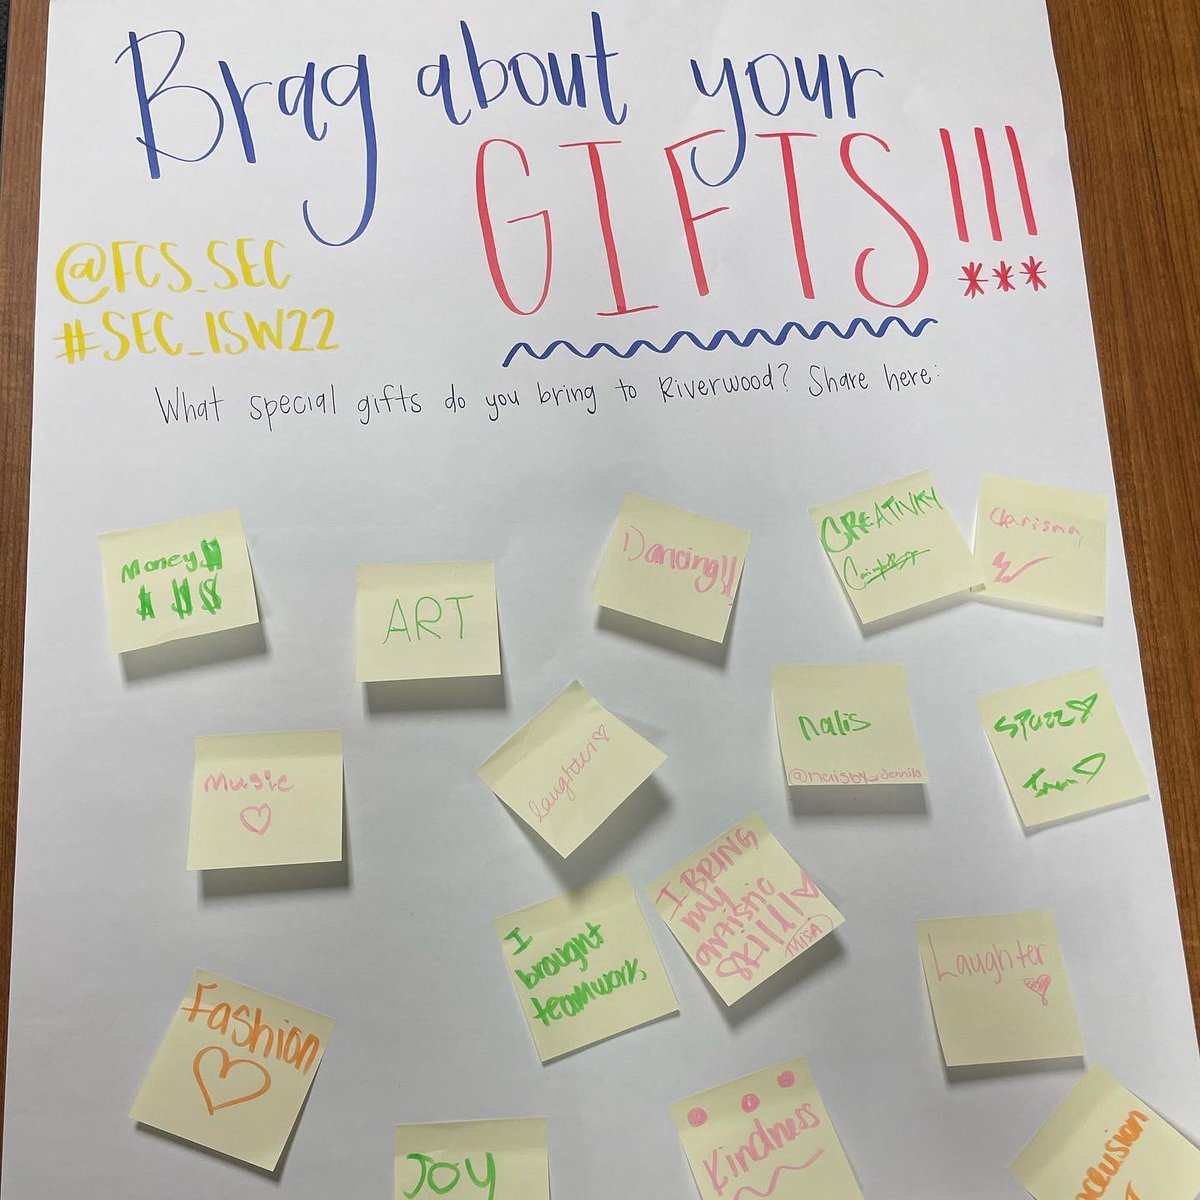 Brag about your
GIFTS!!!
@FCS_SEC
#SEC_ISW22
What special gifts do you bring to Riverwood? Share here:
Money$
$ $ $
ART
Dancing!!
CREATIVITY
Charisma
Music
laughter
nalis
Spazz
I
brought
teamwork,
I BRING
my
artistic
skill!!
Laughter
Fashion
JOY
Kindness